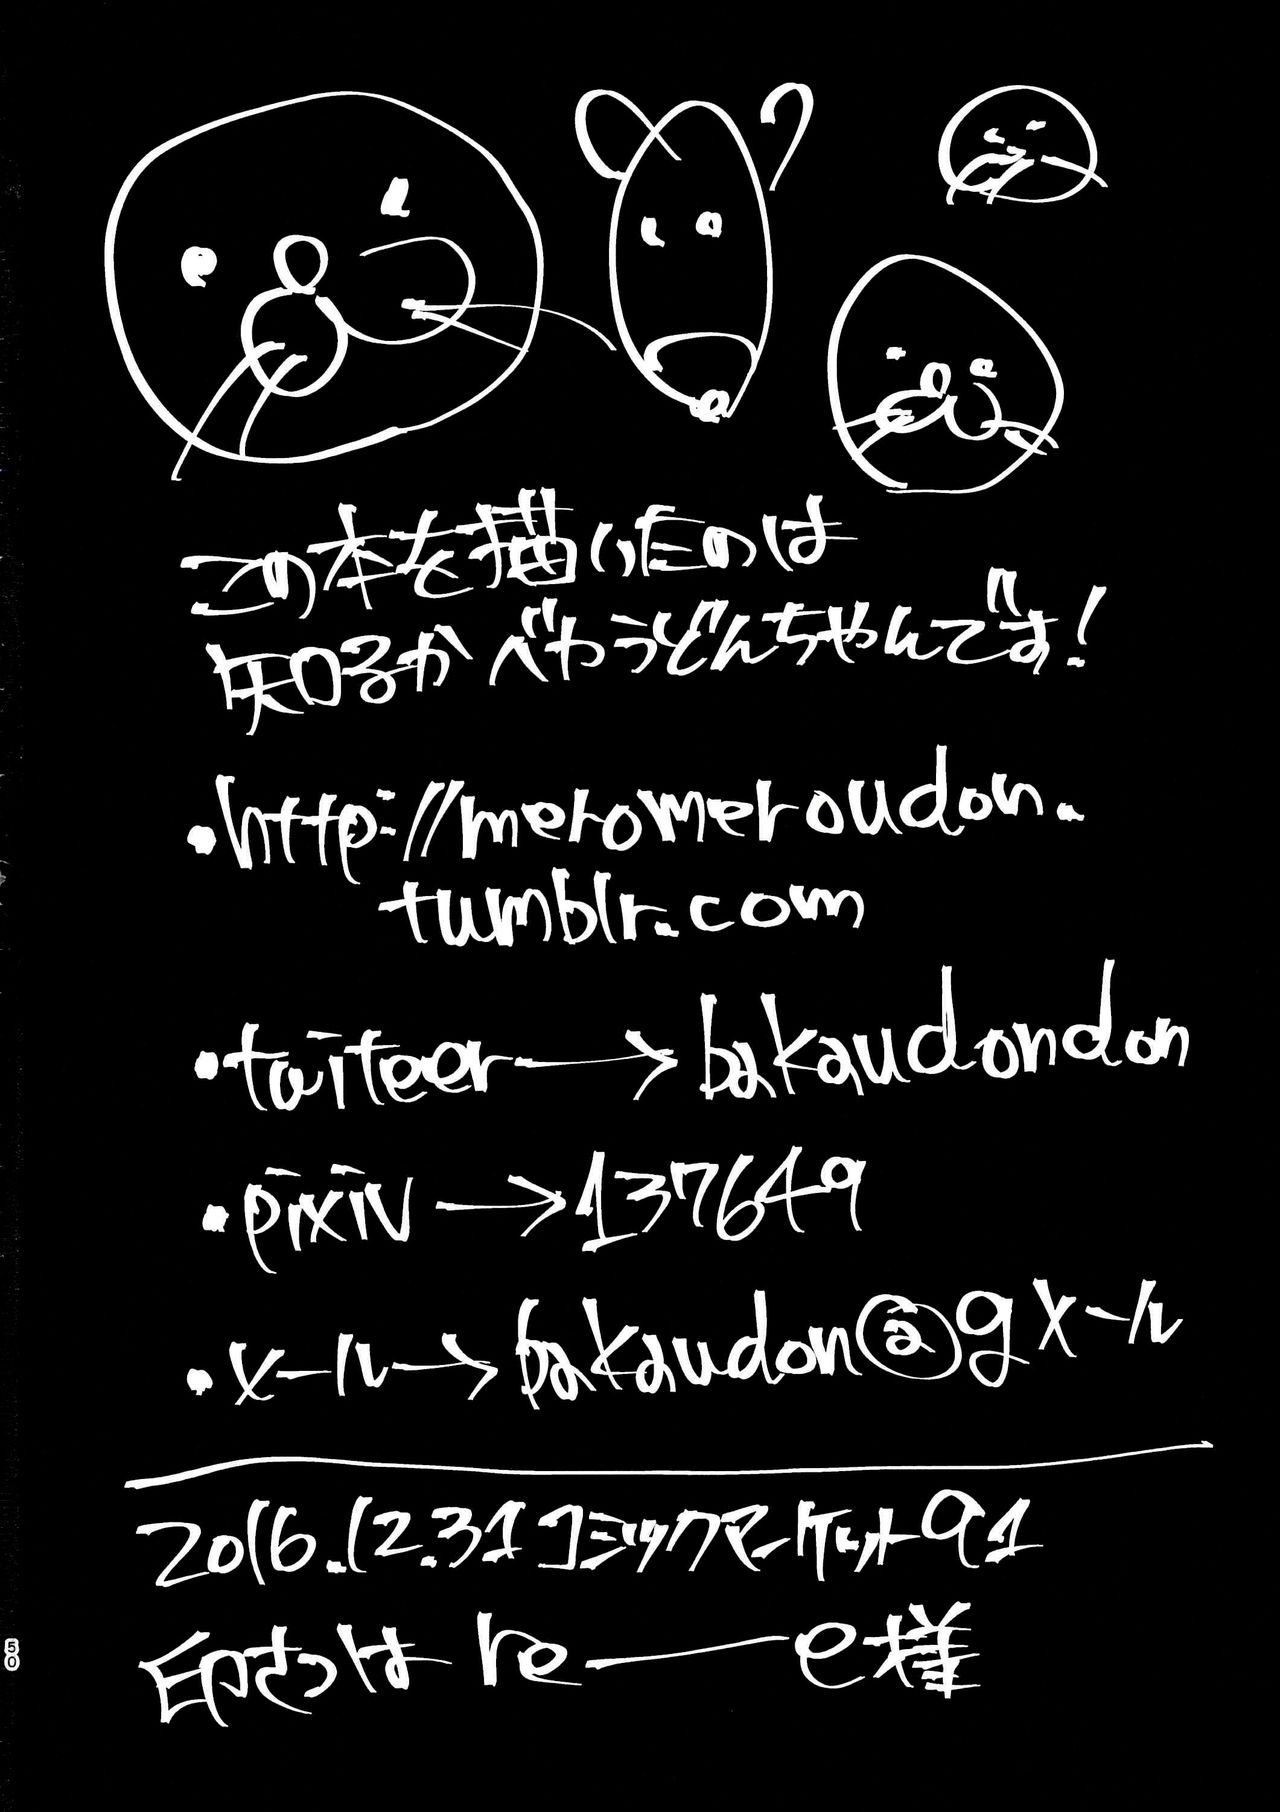 この本を描いたのは
知るかべわうどんちゃんです!
・http://meromeroudon.
tumblr.com
・twiteer→bakaudondon
・pixiv→137649
・メール→bakaudon@gメール
2016.12.31コミックマーケット91
印さつはre——e様
50